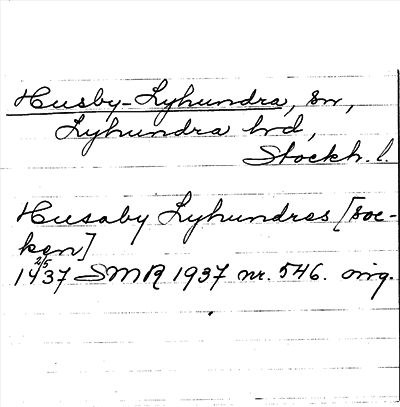 Husby-Lyhundra, sn,
Lyhundra hrd,
Stockh. l.
Husaby Lyhundres [soc-
ken]
1437 2/5 SMR 1937 nr. 546. orig.